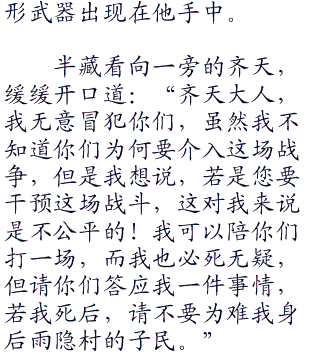 形武器出现在他手中。
半藏看向一旁的齐天，
缓缓开口道：“齐天大人，
我无意冒犯你们，虽然我不
知道你们为何要介入这场战
争，但是我想说，若是您要
干预这场战斗，这对我来说
是不公平的！我可以陪你们
打一场，而我也必死无疑，
但请你们答应我一件事情，
若我死后，请不要为难我身
后雨隐村的子民。”